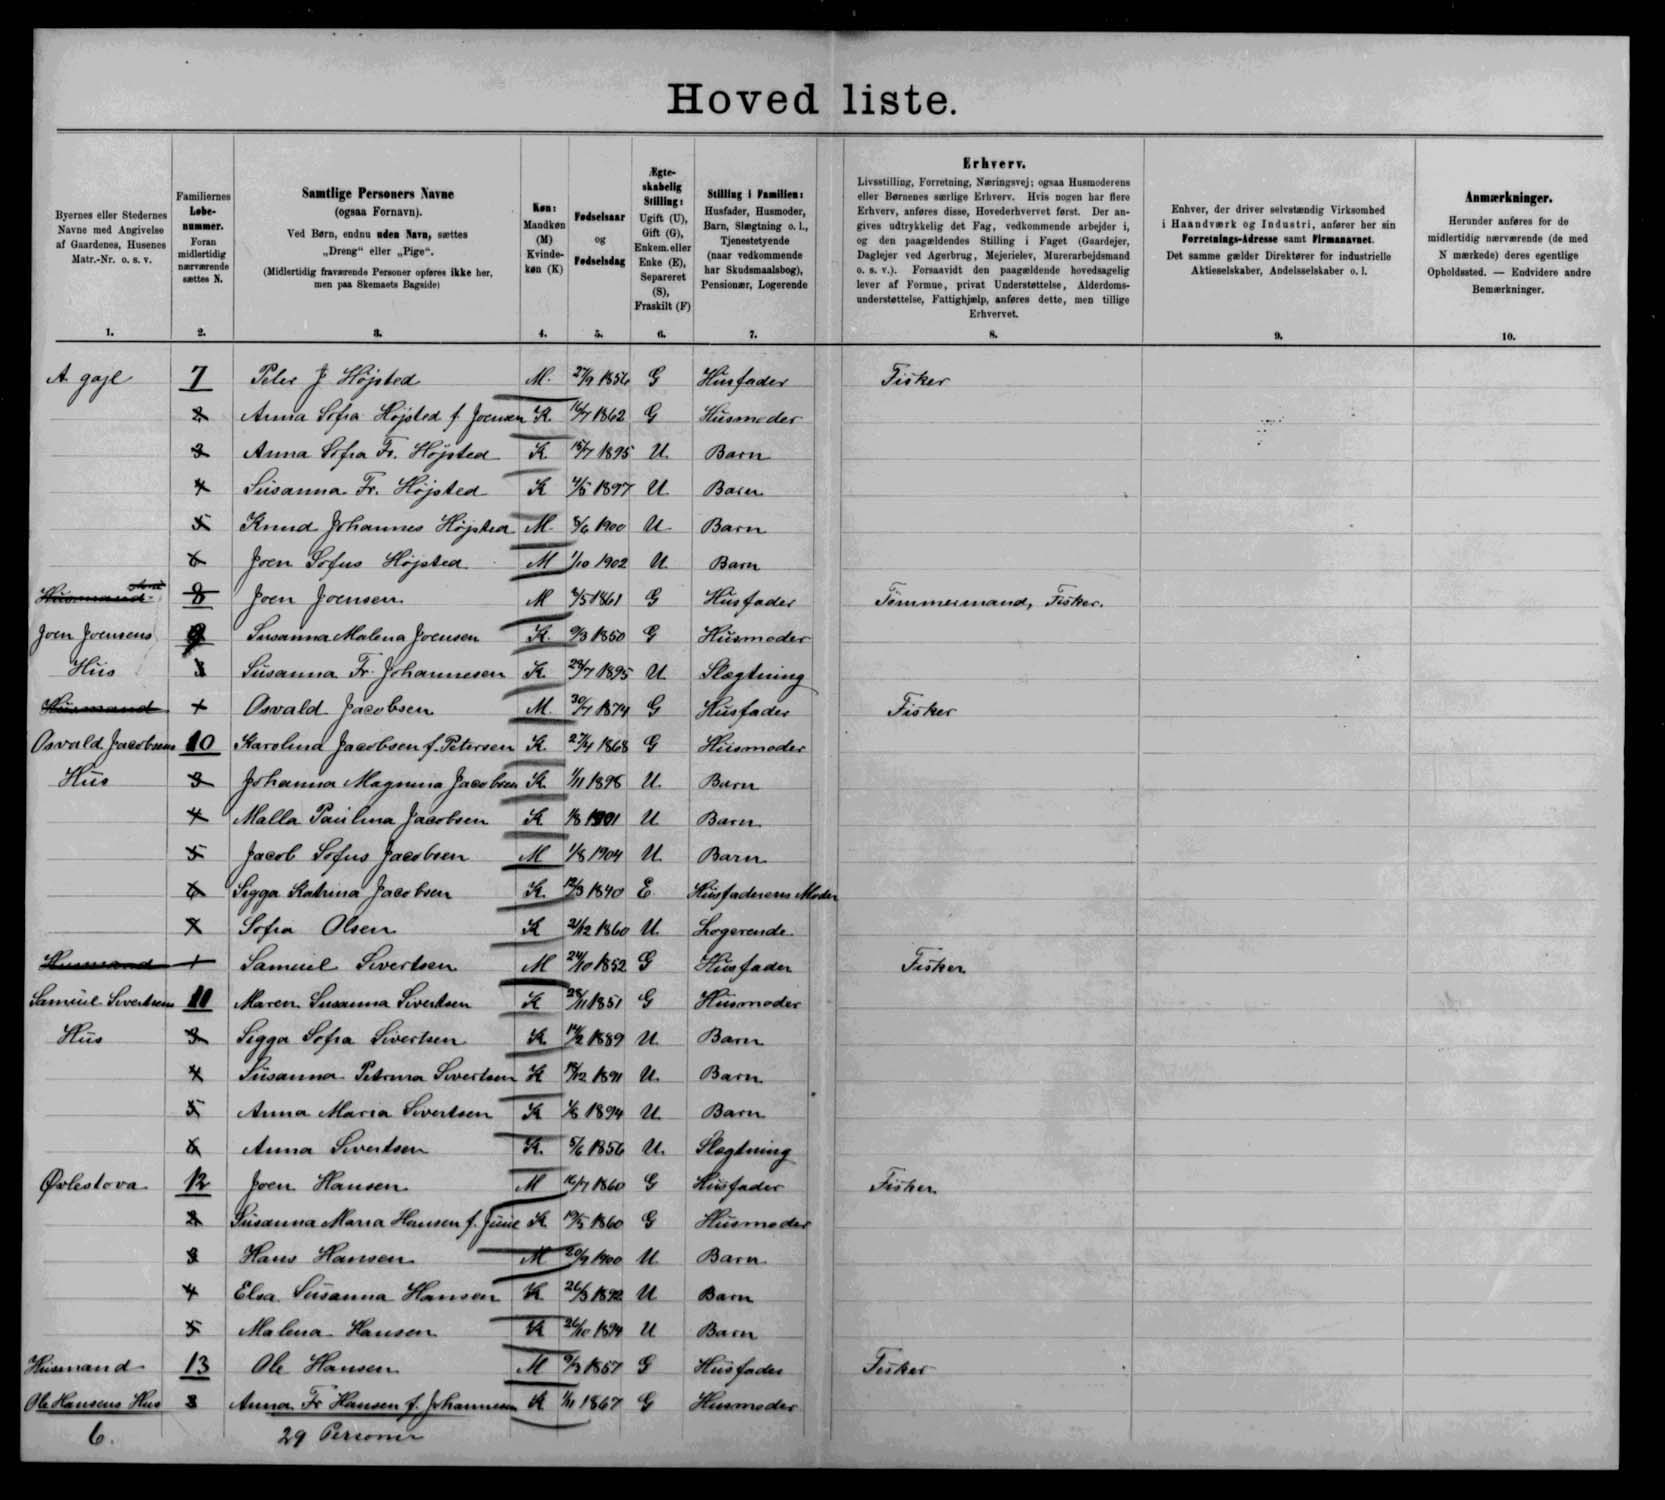 Hovedliste.
Byernes eller Stedernes Navne med Angivelse af Gaardenes, Husenes Matr.-Nr. o. s. v.
Familiernes Løbenummer. Foran midlertidig nærværende sættes N.
Samtlige Personers Navne
(ogsaa Fornavn).
Ved Børn, endnu uden Navn, sættes „Dreng“ eller „Pige“.
(Midlertidig fraværende Personer opføres ikke her, men paa Skemaets Bagside)
Køn: Mandkøn (M) Kvindekøn (K)
Fødselsaar og Fødselsdag
Ægteskabelig Stilling: Ugift (U), Gift (G), Enkem. eller Enke (E), Separeret (S), Fraskilt (F)
Stilling i Familien: Husfader, Husmoder, Barn, Slægtning o. l., Tjenestetyende (naar vedkommende har Skudsmaalsbog), Pensionær, Logerende
Erhverv.
Livsstilling, Forretning, Næringsvej; ogsaa Husmoderens eller Børnenes særlige Erhverv. Hvis nogen har flere Erhverv, anføres disse, Hovederhvervet først. Der angives udtrykkelig det Fag, vedkommende arbejder i, og den paagældendes Stilling i Faget (Gaardejer, Daglejer ved Agerbrug, Mejerielev, Murerarbejdsmand o. s. v.). Forsaavidt den paagældende hovedsagelig lever af Formue, privat Understøttelse, Alderdomsunderstøttelse, Fattighjælp, anføres dette, men tillige Erhvervet.
Enhver, der driver selvstændig Virksomhed i Haandværk og Industri, anfører her sin Forretnings-Adresse samt Firmanavnet. Det samme gælder Direktører for industrielle Aktieselskaber, Andelsselskaber o. l.
Anmærkninger.
Herunder anføres for de midlertidig nærværende (de med N mærkede) deres egentlige Opholdssted. — Endvidere andre Bemærkninger.
1. 2. 3. 4. 5. 6. 7. 8. 9. 10.
A gajl 7 Peter J Højsted M. 27/9 1856 G Husfader Fisker
2 Anna Sofia Højsted f. Joensen K. 16/7 1862 G Husmoder
3 Anna Sofia Fr. Højsted K. 15/7 1895 U. Barn
4 Susanna Fr. Højsted K 4/5 1897 U. Barn
5 Knud Johannes Højsted M. 8/6 1900 U. Barn
6 Joen Sofus Højsted M 1/10 1902 U. Barn
Husmand 8 Joen Joensen M 4/5 1861 G Husfader Tømmermand, Fisker.
Joen Joensens 9 Susanna Malena Joensen K. 9/3 1850 G Husmoder
Hus 3 Susanna Fr. Johannesen K. 28/7 1895 U Slægtning
Husmand + Osvald Jacobsen M. 30/7 1874 G Husfader Fisker
Osvald Jacobsens 10 Karolina Jacobsen f. Petersen K. 27/4 1868 G Husmoder
Hus 3 Johanna Magnina Jacobsen K. 1/11 1898 U. Barn
4 Malla Paulina Jacobsen K 1/8 1901 U Barn
5 Jacob Sofus Jacobsen M 1/8 1904 U. Barn
6 Sigga Katrina Jacobsen K. 12/3 1840 E Husfaderens Moder
7 Sofia Olsen K 21/12 1860 U. Logerende
Husmand 1 Samuel Sivertsen M 24/10 1852 G Husfader Fisker
Samuel Sivertsens 11 Maren Susanna Sivertsen K 28/11 1851 G Husmoder
Hus 3 Sigga Sofia Sivertsen K. 14/2 1889 U. Barn
4 Susanna Petrina Sivertsen K 18/12 1891 U. Barn
5 Anna Maria Sivertsen K 1894 U. Barn
6 Anna Sivertsen K. 5/6 1856 U. Slægtning
Øvlestova 12 Joen Hansen M 16/7 1860 G Husfader Fisker
2 Susanna Maria Hansen f. Juul K 19/5 1860 G Husmoder
3 Hans Hansen M 20/9 1900 U Barn
4 Elsa Susanna Hansen K 26/3 1892 U Barn
5 Malena Hansen K 26/10 1894 U Barn
Husmand 13 Ole Hansen M 9/3 1857 G Husfader Fisker
Ole Hansens Hus 3 Anna Fr Hansen f. Johannesen K 1/11 1867 G Husmoder
6. 29 Personer